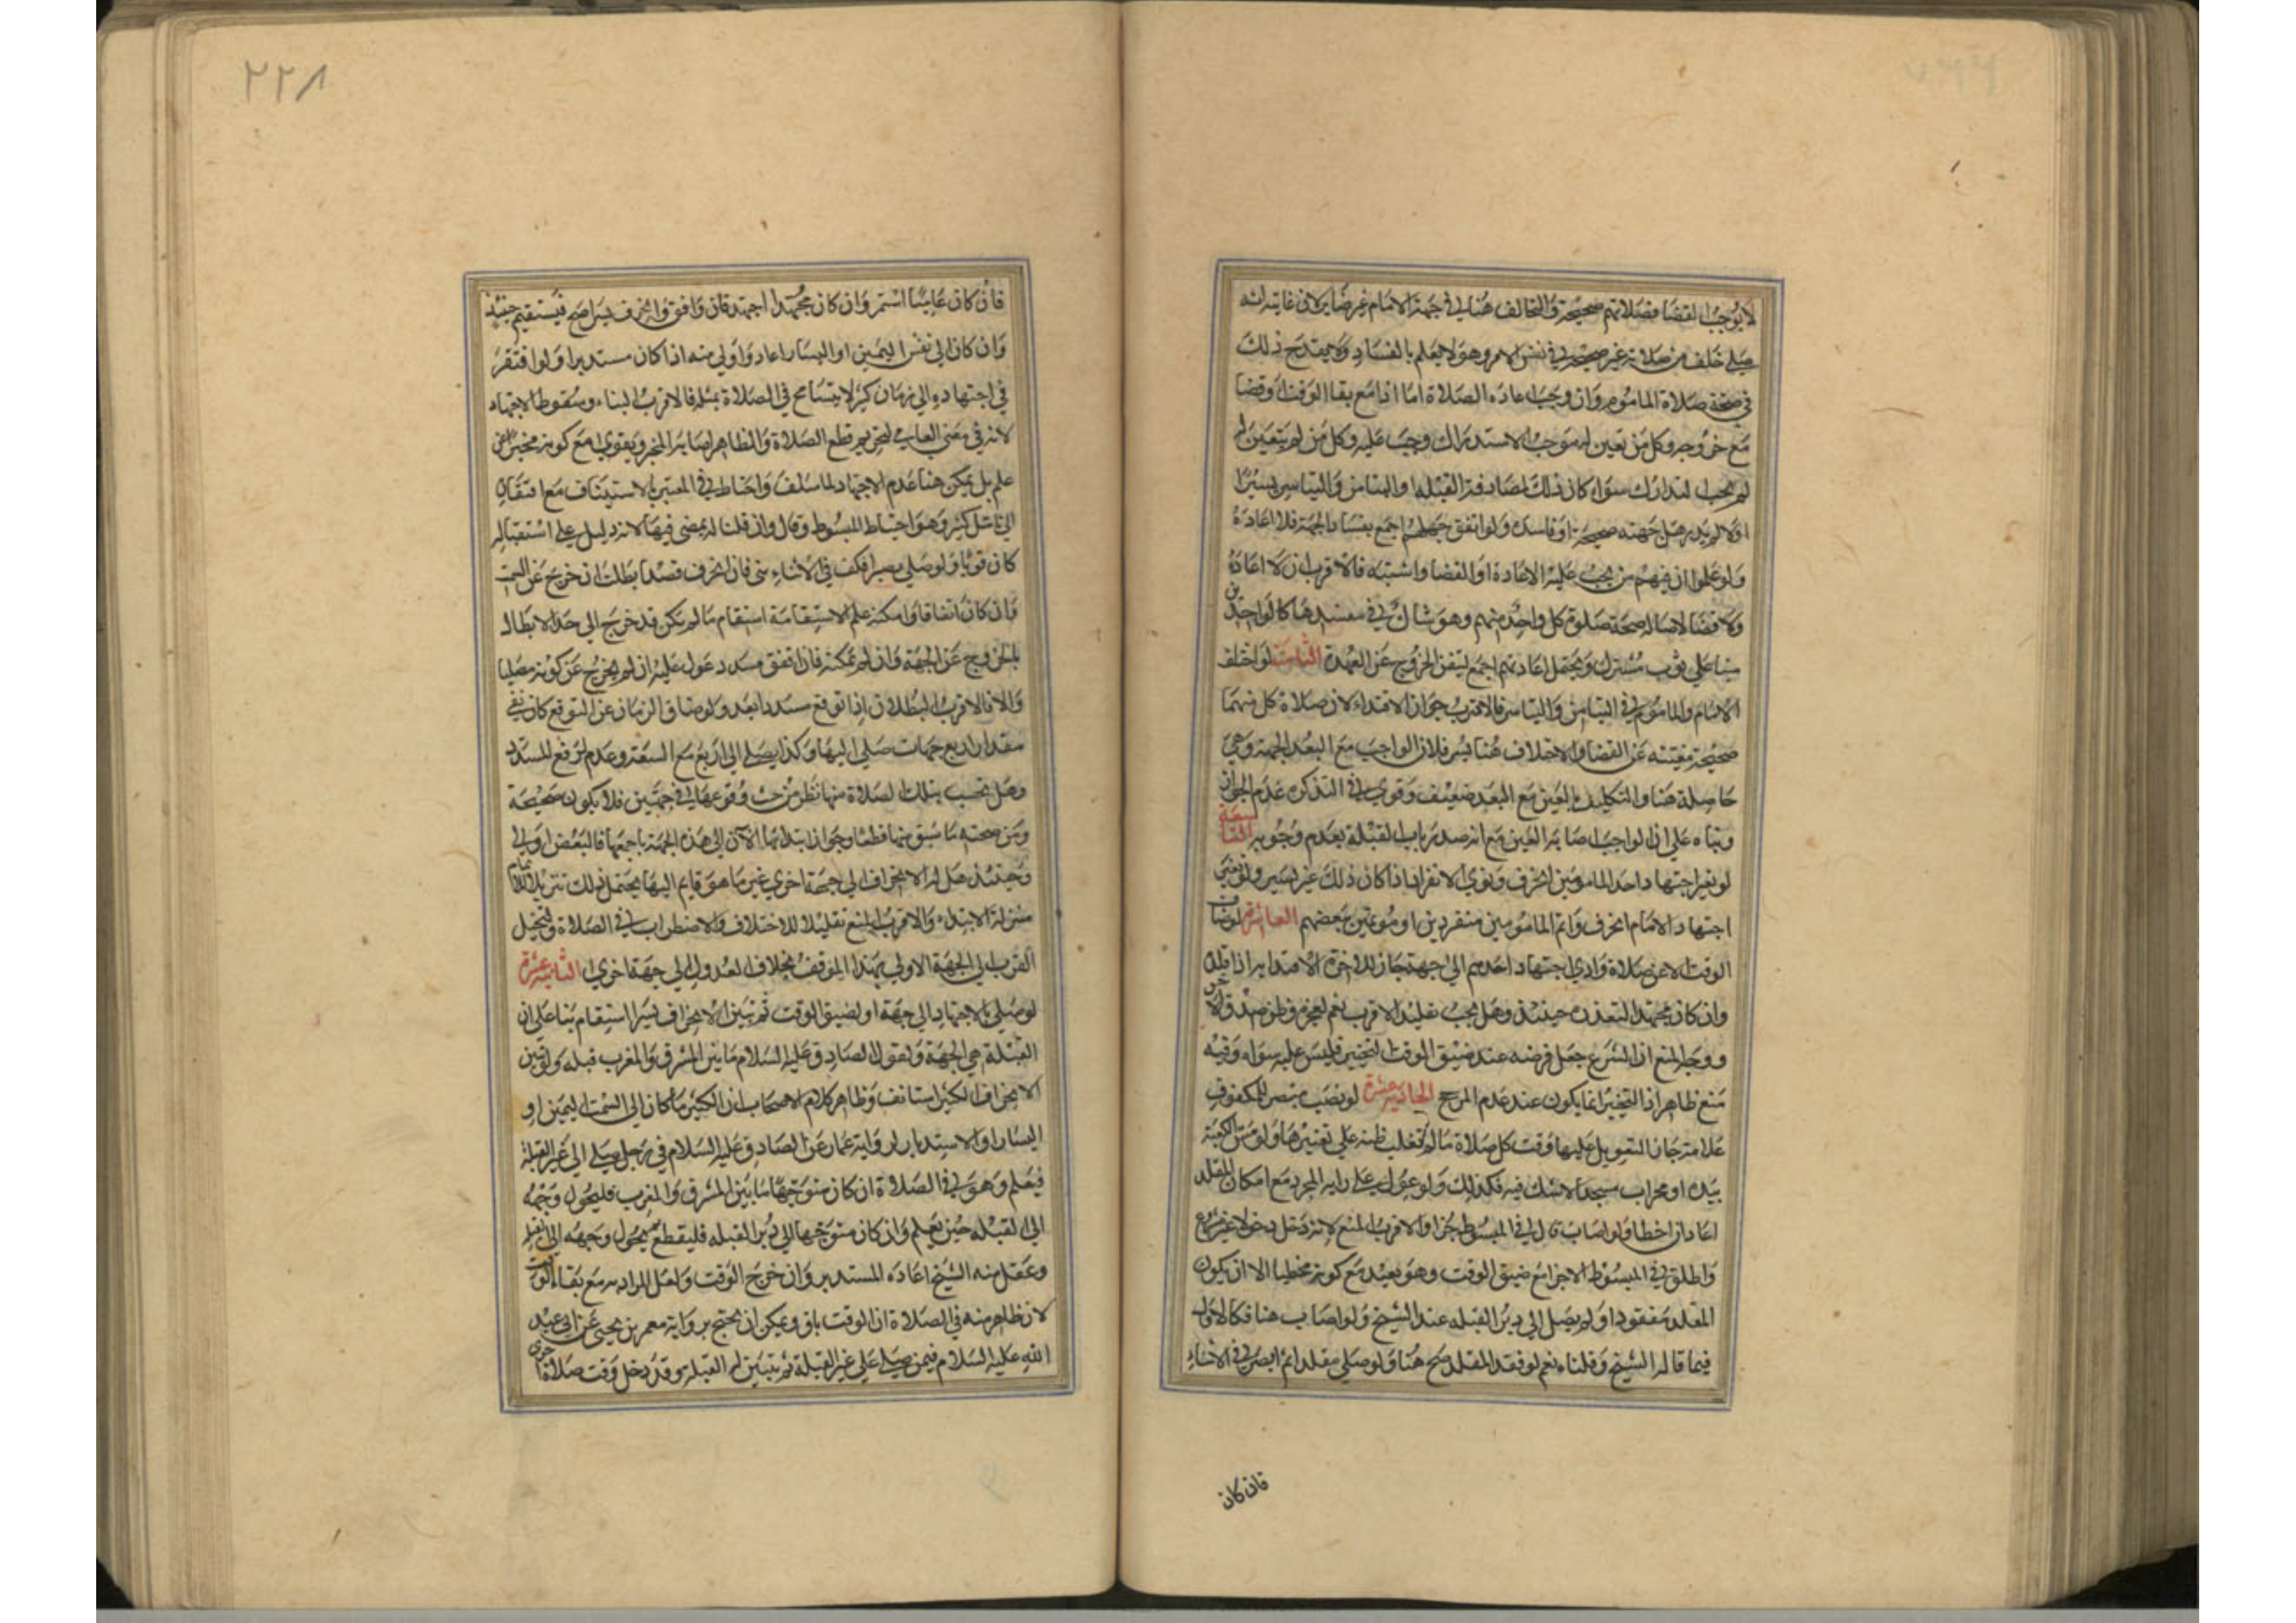 لا يوجب القضا فصلاتهم صحيحة والتخالف هنا في جهة الامام غير ضاير لان غايته انه
صلي خلف من صلاته غير صحيحة في نفس الامر وهو لا يعلم بالفساد ولا يقدح ذلك
في صحة صلاة الماموم وان وجب اعاده الصلاة اما اذا مع بقا الوقت او قضا
مع خروجه وكل من تعين له موجب الاستدراك وجب عليه وكل من لم يتعين له
لم يجب التدارك سواء كان ذلك لمصادفة القبله او التيامن والتياسر يسيرا
او لا لم يدر هل جهته صحيحة او فاسدة ولو اتفق جهلهم اجمع بفساد الجهة فلا اعادة
ولو علموا ان فيهم من يجب عليه الاعادة او القضا واشتبه فالاقرب ان لا اعادة
ولا قضا لاصالة صحة صلوة كل واحد منهم وهو شاك في مفسدها كالواجدين
منيا علي ثوب مشترك ويحتمل اعادتهم اجمع ليتيقن الخروج عن العهدة الثامنة لو اختلف
الامام والماموم في التيامن والتياسر فالاقرب جواز الاقتداء لان صلاة كل منهما
صحيحة مغنية عن القضا والاختلاف هنا يسير فلان الواجب مع البعد الجهة وهي
حاصلة هنا والتكليف بالعين مع البعد ضعيف وقوي في التذكره عدم الجواز
وبناه علي ان الواجب اصابة العين مع انه صدر باب القبلة بعدم وجوبه التاسعة
لو تغير اجتهاد احد المامومين انحرف ونوي الانفراد اذا كان ذلك غير يسير ولو تغير
اجتهاد الامام انحرف واتم المامومين منفردين او مؤتمين ببعضهم العاشرة لو ضاق
الوقت الا عن صلاة وادي اجتهاد احدهم الي جهة جاز للاخر الاقتدا به اذا قلده
وان كان مجتهدا لتعذره حينئذ وهل يجب تقليد الاقرب نعم لعجزه وظن صدق الآخر
ووجه المنع ان الشرع جعل فرضه عند ضيق الوقت التخيير فليس عليه سواه وفيه
منع ظاهر اذ التخيير انما يكون عند عدم المرجح الحادية عشرة لو نصب مبصر للمكفوف
علامة جاز التعويل عليها وقت كل صلاة ما لم تغلب ظنه علي تغييرها ولو مس الكعبة
بيده او محراب مسجد لا يشك فيه فكذلك ولو عول علي رايه المجرد مع امكان المقلد
اعاد ان اخطا ولو اصاب قال في المبسوط اجزا والاقرب المنع لانه دخل دخولا غير مشروع
واطلق في المبسوط الاجزا مع ضيق الوقت وهو بعيد مع كونه مخطيا الا ان يكون
المقلد مفقودا ولم يصل الي دبر القبله عند الشيخ ولو اصاب هنا فكالاول
فيما قاله الشيخ وقلناه نعم لو فقد المقلد صح هنا ولو صلي مقلدا ثم ابصر في الاثناء
فان كان
٢٢٨
فان كان عاميا استمر وان كان مجتهدا اجتهد فان وافق او انحرف يسيرا صح فيستقيم حينئذ
وان كان الي نفس اليمين او اليسار اعاد واولي منه اذا كان مستدبرا ولو افتقر
في اجتهاده الي زمان كثير لا يتسامح في الصلاة بمثله فالاقرب البناء وسقوط الاجتهاد
لانه في معني العامي لتحريم قطع الصلاة والظاهر اصابة المخبر ويقوي مع كونه مخبرا عن
علم بل يمكن هنا عدم الاجتهاد لما سلف واحتاط في المعتبر بالاستيناف مع افتقاره
الي تامل كثير وهو احتياط المبسوط وقال وان قلنا انه يمضي فيها لانه دليل علي استقباله
كان قويا ولو صلي بصيرا فكف في الاثناء بني فان انحرف قصدا بطلت ان خرج عن السمت
وان كان اتفاقا وامكنه علم الاستقامة استقام ما لم يكن قد خرج الي حد الابطال
بالخروج عن الجهة وان لم يمكنه فان اتفق مسدد عول عليه ان لم يخرج عن كونه مصليا
والا فالاقرب البطلان اذا توقع مسددا بعد ولو ضاق الزمان عن التوقع كان بقي
مقدار اربع جهات صلي اليها وكذا يصلي الي اربع مع السعة وعدم توقع المسدد
وهل تحسب بتلك الصلاة منها نظر من حيث وقوعها في جهتين فلا يكون صحيحة
ومن صحة ما سبق منها قطعا وجواز ابتدائها الآن الي هذه الجهة باجمعها فالبعض اولي
وحينئذ هل له الانحراف الي جهة اخري غير ما هو قايم اليها يحتمل ذلك تنزيلا للاتمام
منزلة الابتداء والاقرب المنع تقليلا للاختلاف والاضطراب في الصلاة ولتخيل
القرب الي الجهة الاولي بهذا الموقف بخلاف العدول الي جهة اخري الثانية عشرة
لو صلي بالاجتهاد الي جهة او لضيق الوقت ثم تبين الانحراف يسيرا استقام بنا علي ان
القبلة هي الجهة ولقول الصادق عليه السلام ما بين المشرق والمغرب قبله ولو تبين
الانحراف الكثير استانف وظاهر كلام الاصحاب ان الكثير ما كان الي السمت اليمين او
اليسار او الاستدبار لرواية عمار عن الصادق عليه السلام في رجل يصلي الي غير القبلة
فيعلم وهو في الصلاة ان كان متوجها ما بين المشرق والمغرب فليحول وجهه
الي القبله حين يعلم وان كان متوجها الي دبر القبله فليقطع ثم يحول وجهه الي القبلة
وعقل منه الشيخ اعاده المستدبر وان خرج الوقت ولعل المراد به مع بقاء الوقت
لان ظاهر منه في الصلاة ان الوقت باق ويمكن ان يحتج برواية معمر بن يحيي عن ابي عبد
الله عليه السلام فيمن صلي علي غير القبلة ثم تبين له القبله وقد دخل وقت صلاة اخري